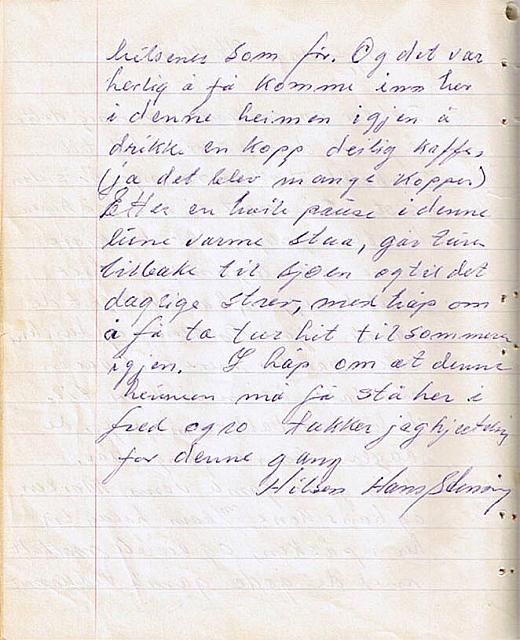 hilsenes som før. Og det var
herlig å få komme inn her
i denne heimen igjen å
drikke en kopp deilig kaffe,
(ja det blev mange kopper)
Etter en hvile pause i denne
lune varme stua, går turen
tilbake til sjøen og til det
daglige strev, med håp om
å få ta tur hit til sommeren
igjen. I håp om at denne
heimen må få stå her i
fred og ro takker jag hjertelig
for denne gang
Hilsen Hans